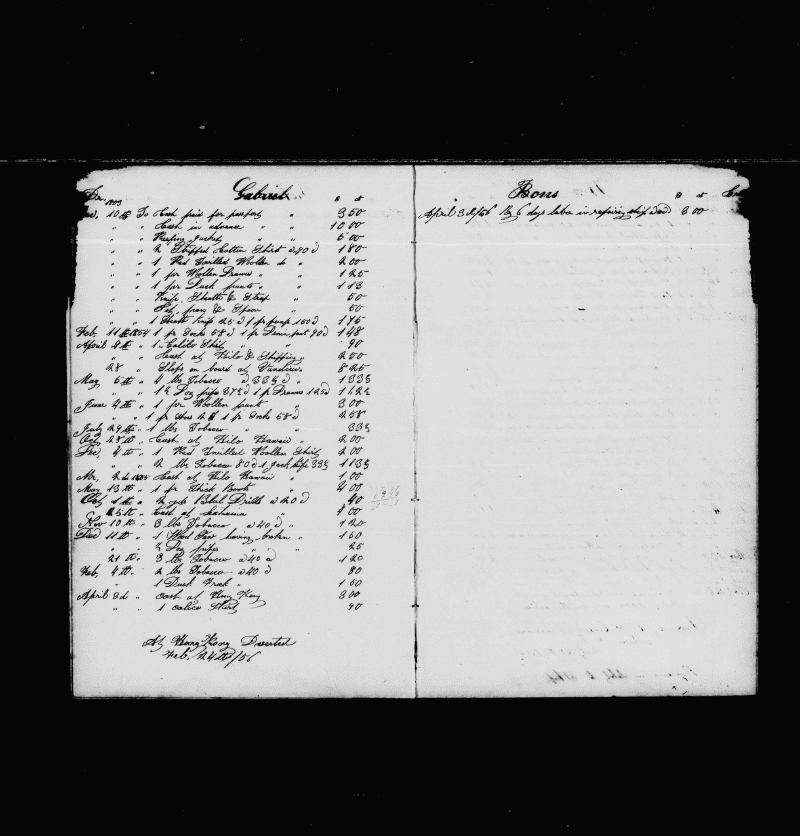 Dr. 1853 Gabriel
Dec, 10th To Cash paid for passport " 3 50
" " Cash in advance " " 10 00
" " Reefing Jacket " 5 00
" " 2 Stripped Cotton Shirt a 90 d 1 80
" " 1 Red Twilled Woollen do " 2 00
" " 1 pr Woollen Drawers " 1 25
" " 1 pr Duck pants " " 1 13
" " Knife Sheath & Strap 50
" " Pot, pan & Spoon 50
" " 1 Sheath Knife 25 d 1 pr pumps 150 d 1 75
Feb. 11th 1854 1 pr Socks 58 d 1 pr pants 90 d 1 48
April 8th " 1 Calico Shirt " " 90
" " Cash at Hilo & Shipping " 2 00
" 28 Slops on board at 8 25
May 5th " 4 lbs Tobacco a 33⅓ d " 1 33⅓
" " Doz pipes 37½ d 1 pr Drawers 125 d 1 62½
June 4th " 1 pr Woollen pants 3 00
" " 1 pr Shoes 2 $ 1 pr Socks 58 d 2 58
July 29th " 1 lb Tobacco " 33⅓
Oct 28th " Cash at Hilo Hawaii " 2 00
Dec 4th " 1 Red Twilled Woollen Shirt 2 00
" " 2 lbs Tobacco 80 d 1 Jack Knife 33⅓ 1 13⅓
Mr, 2d 1855 Cash at Hilo Hawaii " 1 00
May 13th " 1 pr Thick Boots " 4 00
Oct 1th " 2 yds Blue Drills a 20 d 40
" 25th " Cash at Lahaina " 4 00
Nov 10th " 3 lbs Tobacco a 40 d " 1 20
Dec 11th " 1 having broken " 1 50
" " ½ Doz pipes " " 25
" 21th " 3 lbs Tobacco a 40 d 1 20
Feb, 4th " 2 lbs Tobacco a 40 d 80
" 1 Duck Frock " 1 50
April 3d " Cash at Hong Kong 3 00
" " 1 calico Shirt 90
At Hong Kong Deserted
Feb, 24th/56
Bons
April 3d/56 By 6 days labor in repairing ship 3 00